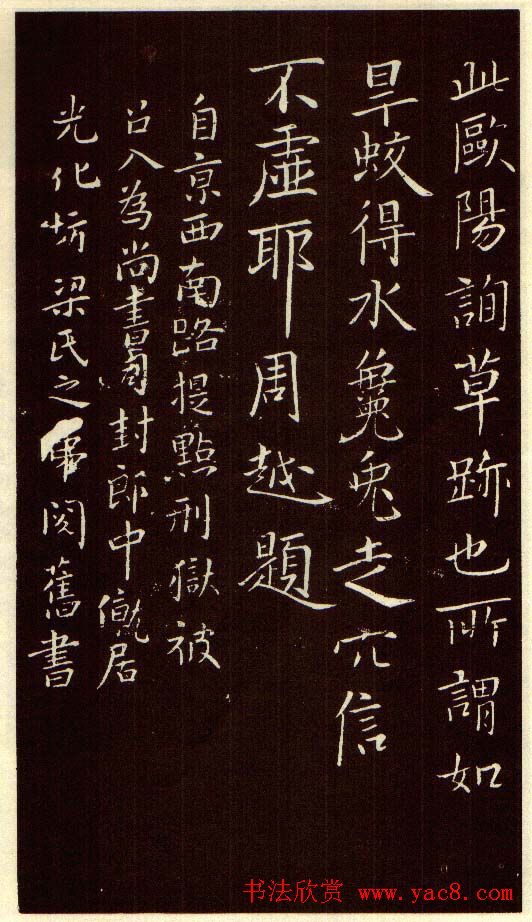 此歐陽詢草跡也所謂如
旱蛟得水毚兔走穴信
不虛耶周越題
自京西南路提點刑獄被
召入為尚書司封郎中僦居
光化坊梁氏之第閱舊書
书法欣赏 www.yac8.com